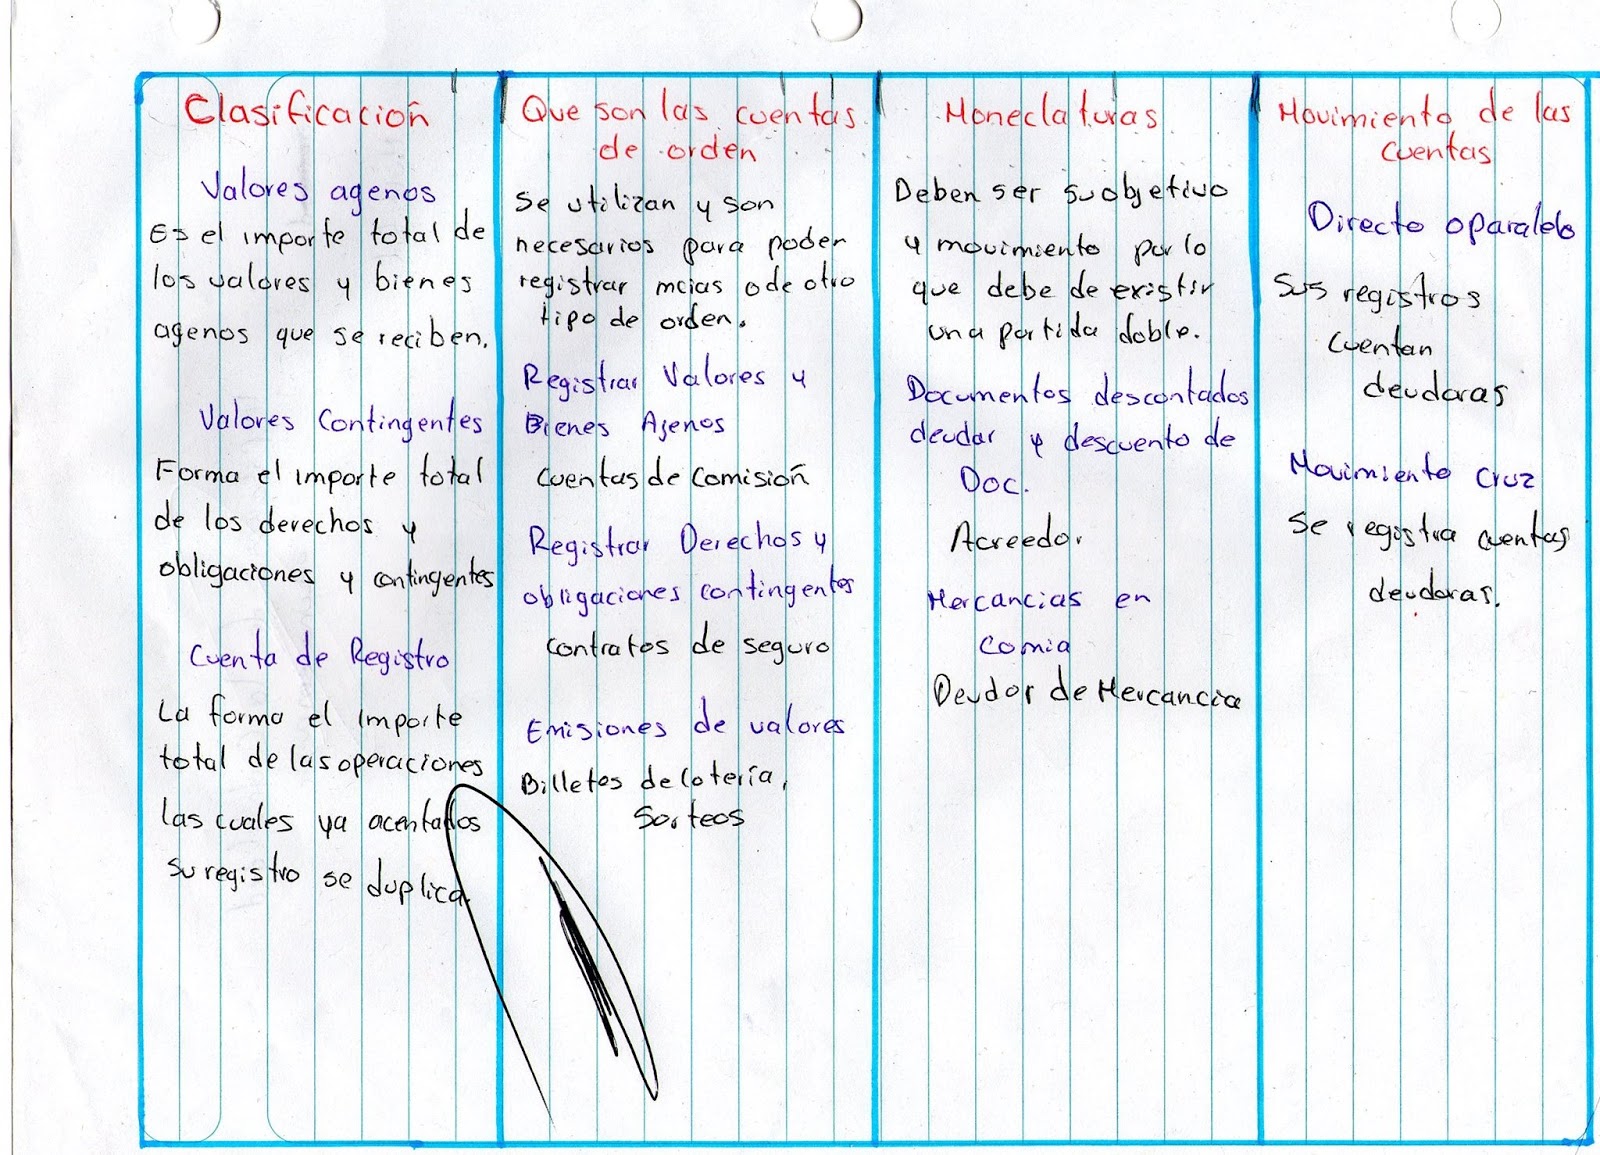 Clasificacion
Valores agenos
Es el importe total de
los valores y bienes
agenos que se reciben.
Valores Contingentes
Forma el importe total
de los derechos y
obligaciones y contingentes
Cuenta de Registro
La forma el importe
total de las operaciones
las cuales ya acentados
su registro se duplica.
Que son las cuentas
de orden
Se utilizan y son
necesarios para poder
registrar mcias o de otro
tipo de orden.
Registrar Valores y
Bienes Ajenos
Cuentas de Comisión
Registrar Derechos y
obligaciones contingentes
Contratos de seguro
Emisiones de valores
Billetes de lotería,
Sorteos
Moneclaturas
Deben ser su objetivo
y movimiento por lo
que debe de existir
una partida doble.
Documentos descontados
deudar y descuento de
Doc.
Acreedor
Mercancias en
Comia
Deudor de Mercancia
Movimiento de las
cuentas
Directo o paralelo
Sus registros
cuentan
deudoras
Movimiento Cruz
Se registra cuentas
deudoras.